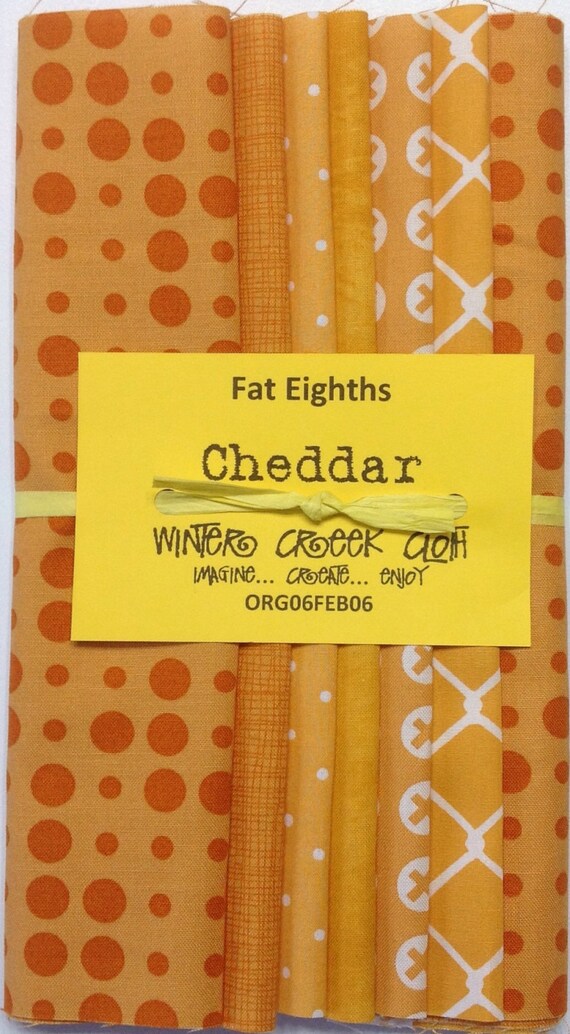 Fat Eighths
Cheddar
WINTER CREEK CLOTH
IMAGINE... CREATE... ENJOY
ORG06FEB06